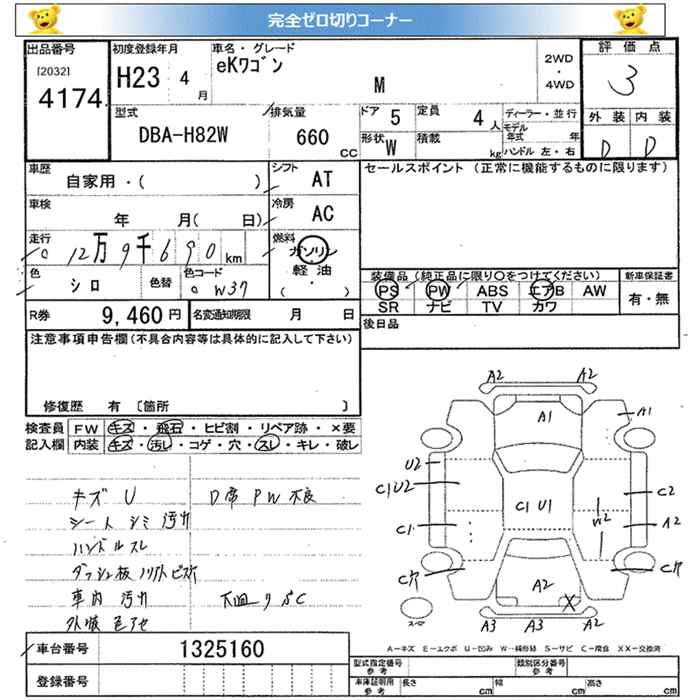 完全ゼロ切りコーナー
出品番号 [2032] 4174
初度登録年月 H23 4月
車名・グレード eKワゴン M
2WD・4WD
評価点 3
外装 内装 D D
型式 DBA-H82W
排気量 660 CC
ドア 5 定員 4人
形状 W 積載 kg
ディーラー・並行
モデル年式 年
ハンドル 左・右
車歴 自家用・( )
シフト AT
セールスポイント (正常に機能するものに限ります)
車検 年 月( 日)
冷房 AC
走行 12万9千690km
燃料 ガソリン 軽油 ・( )
色 シロ 色替 色コード W37
装備品(純正品に限り○をつけてください)
PS PW ABS エアB AW
SR ナビ TV カワ
新車保証書 有・無
R券 9,460円 名変通知期限 月 日
後日品
注意事項申告欄(不具合内容等は具体的に記入して下さい)
修復歴 有 〔箇所 〕
検査員記入欄
FW キズ・飛石・ヒビ割・リペア跡・×要
内装 キズ・汚レ・コゲ・穴・スレ・キレ・破レ
キズ U D席 PW不良
シート シミ 汚レ
ハンドルスレ
ダッシュ板
車内 汚レ 下回り SC
外装 色アセ
A2 A2
A1 A1
U2
C1U2 C1U1 C2
C1 W2 A2
C穴 A2 C穴
X
A3 A3 A2
A-キズ E-エクボ U-凹み W-補修跡 S-サビ C-腐食 XX-交換済
車台番号 1325160
登録番号
型式指定番号 参考 類別区分番号 参考
車庫証明用 参考 長さ cm 幅 cm 高さ cm